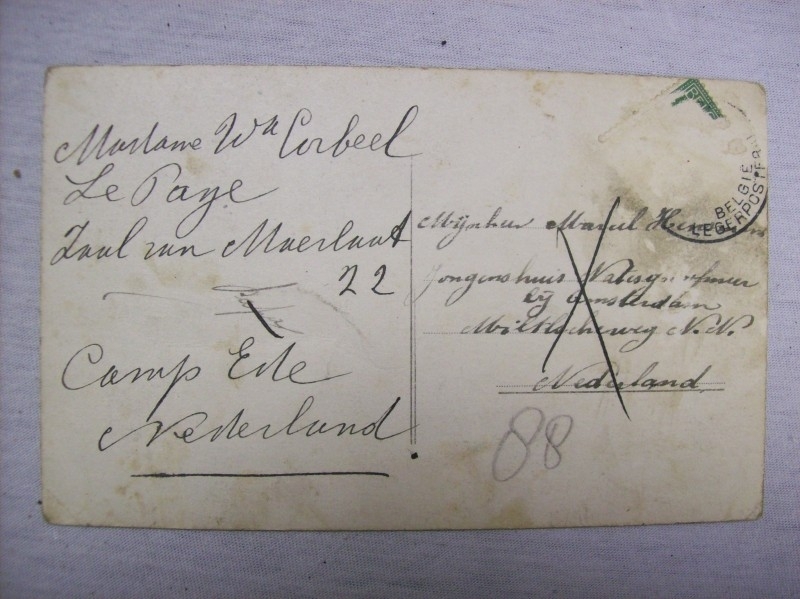 Madame Wa Corbeel
Le Paye
Zaal van Maerlant
22
Camp Ede
Nederland
BELGIE
LEGERPOSTERIJ
Mijnheer Marcel
Jongenshuis
bij Amsterdam
N.N.
Nederland
88